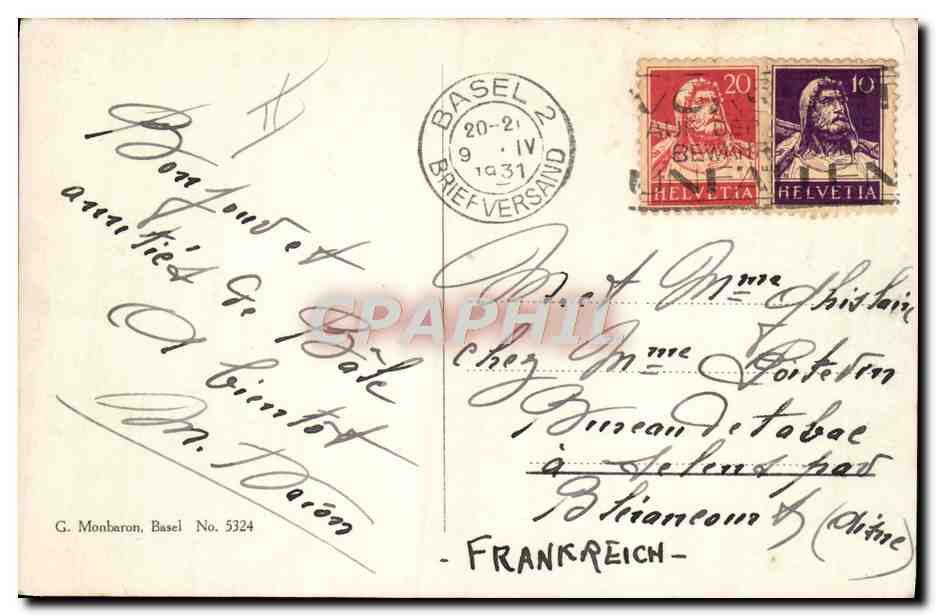 Bonjour et
amitiés de Bâle
A bientôt
M.
G. Monbaron, Basel No. 5324
BASEL 2
20-21
9 . IV
1931
BRIEFVERSAND
20
HELVETIA
10
HELVETIA
CPAPHIL
Mr et Mme Ghislain
chez Mme Poitevin
Bureau de tabac
à Selens par
Blérancourt (Aisne)
- FRANKREICH -